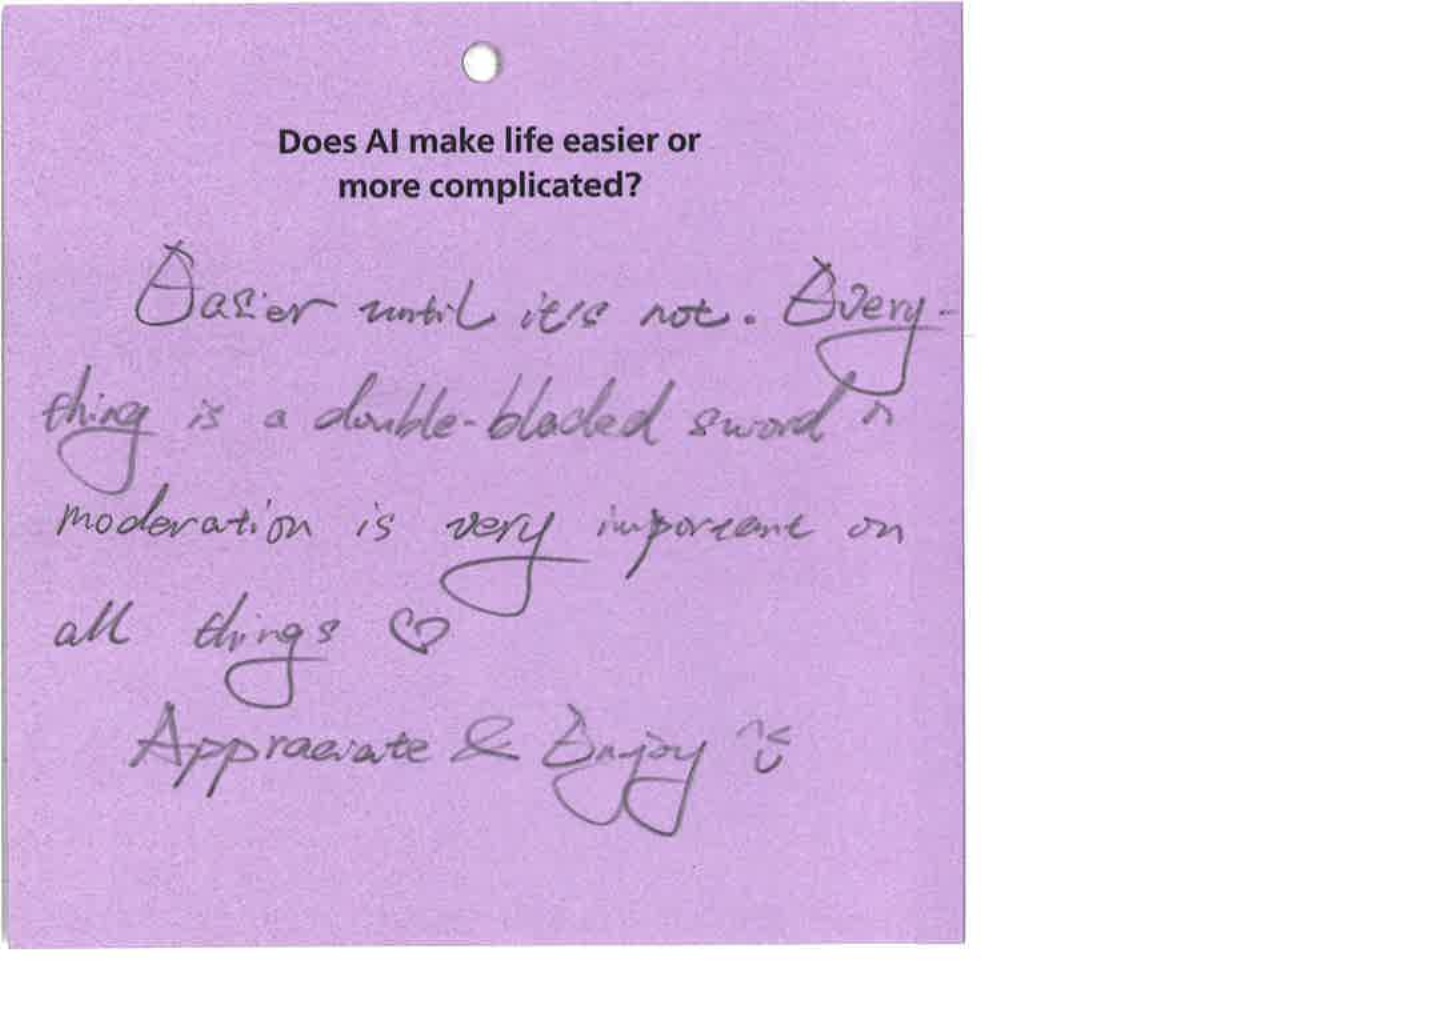 Does AI make life easier or
more complicated?
Easier until it's not. Every-
thing is a double-bladed sword n
moderation is very important on
all things ♡
Appraciate & Enjoy